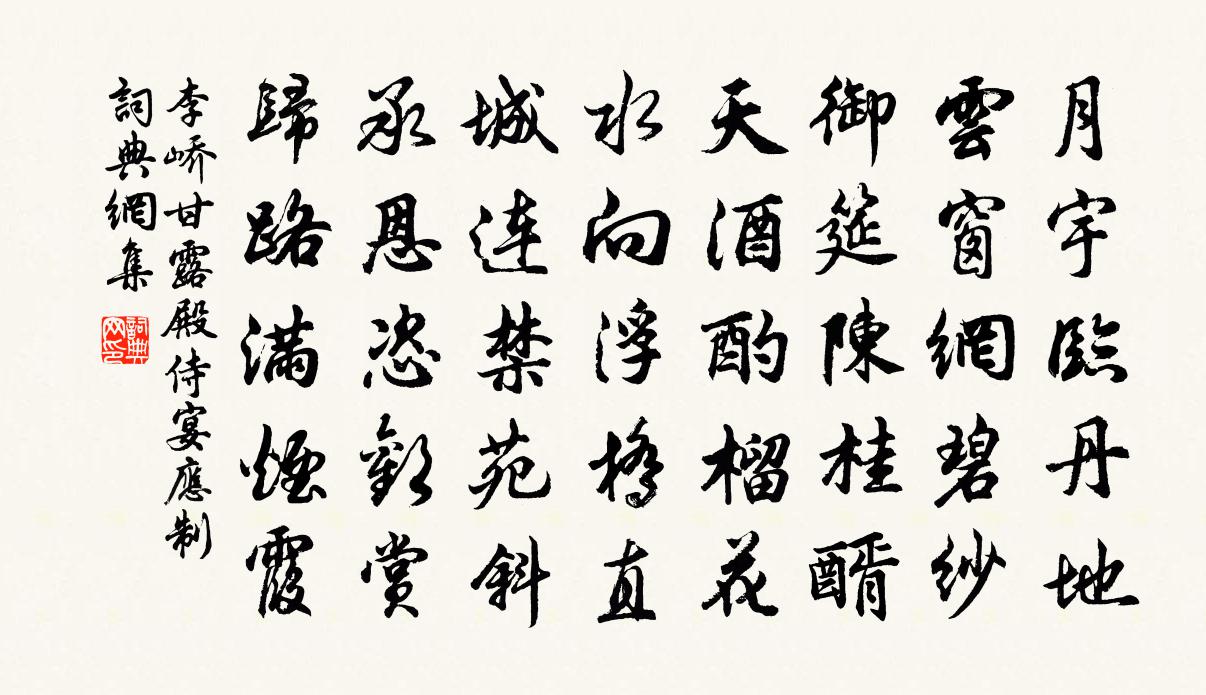 月宇臨丹地
雲窗網碧紗
御筵陳桂醑
天酒酌榴花
水向浮橋直
城連禁苑斜
承恩恣歡賞
歸路滿煙霞
李嶠甘露殿侍宴應制
詞典網集
詞典
网印